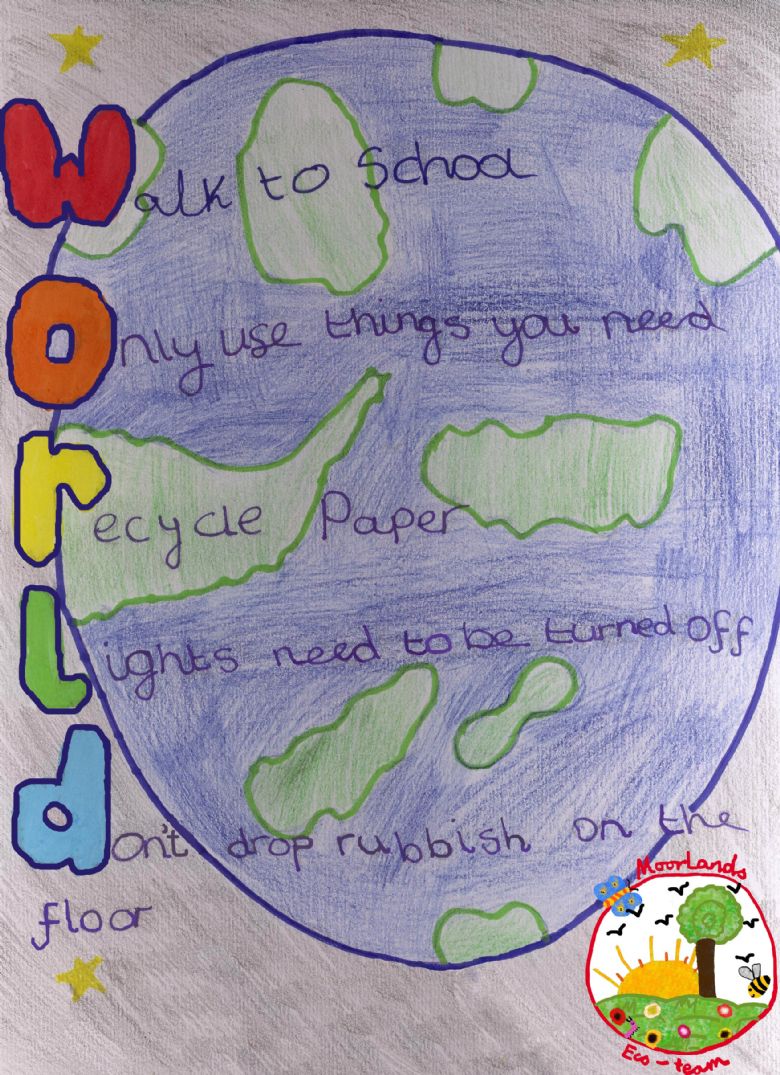 Walk to School
Only use things you need
recycle Paper
Lights need to be turned off
don't drop rubbish on the
floor
Moorlands
Eco-team